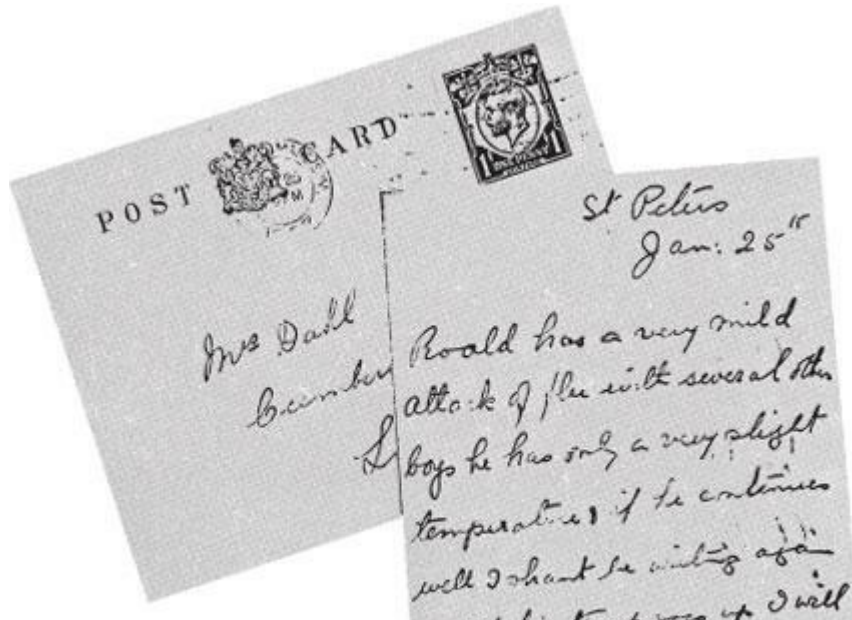 POST CARD
1
Mrs Dahl
St Peters
Jan: 25th
Roald has a very mild
attack of flu with several other
boys he has only a very slight
temperature & if he continues
well I shant be writing again
up I will